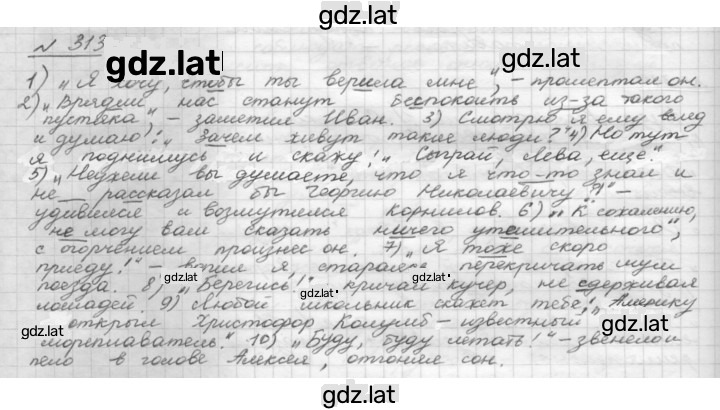 gdz.lat
№ 313
gdz.lat
gdz.lat
1) „Я хочу, чтобы ты верила мне", – прошептал он.
2) „Врядли нас станут беспокоить из-за такого
пустяка" – заметил Иван. 3) Смотрю я ему вслед
и думаю: „Зачем живут такие люди?" 4) Но тут
я поднимусь и скажу: „Сыграй, Лёва, ещё."
5) „Неужели вы думаете, что я что-то знал и
не рассказал бы Георгию Николаевичу?" –
удивился и возмутился Корнилов. 6) „К сожалению,
не могу вам сказать ничего утешительного",
с огорчением произнес он. 7) „Я тоже скоро
приеду!" – я, перекричать шум
gdz.lat
gdz.lat
поезда. 8) „Берегись!" кричал кучер, не сдерживая
gdz.lat
лошадей. 9) Любой школьник скажет тебе: „Америку
открыл Христофор Колумб – известный
gdz.lat
мореплаватель." 10) „Буду, буду летать!" – звенело и
пело в голове Алексея, отгоняя сон.
gdz.lat